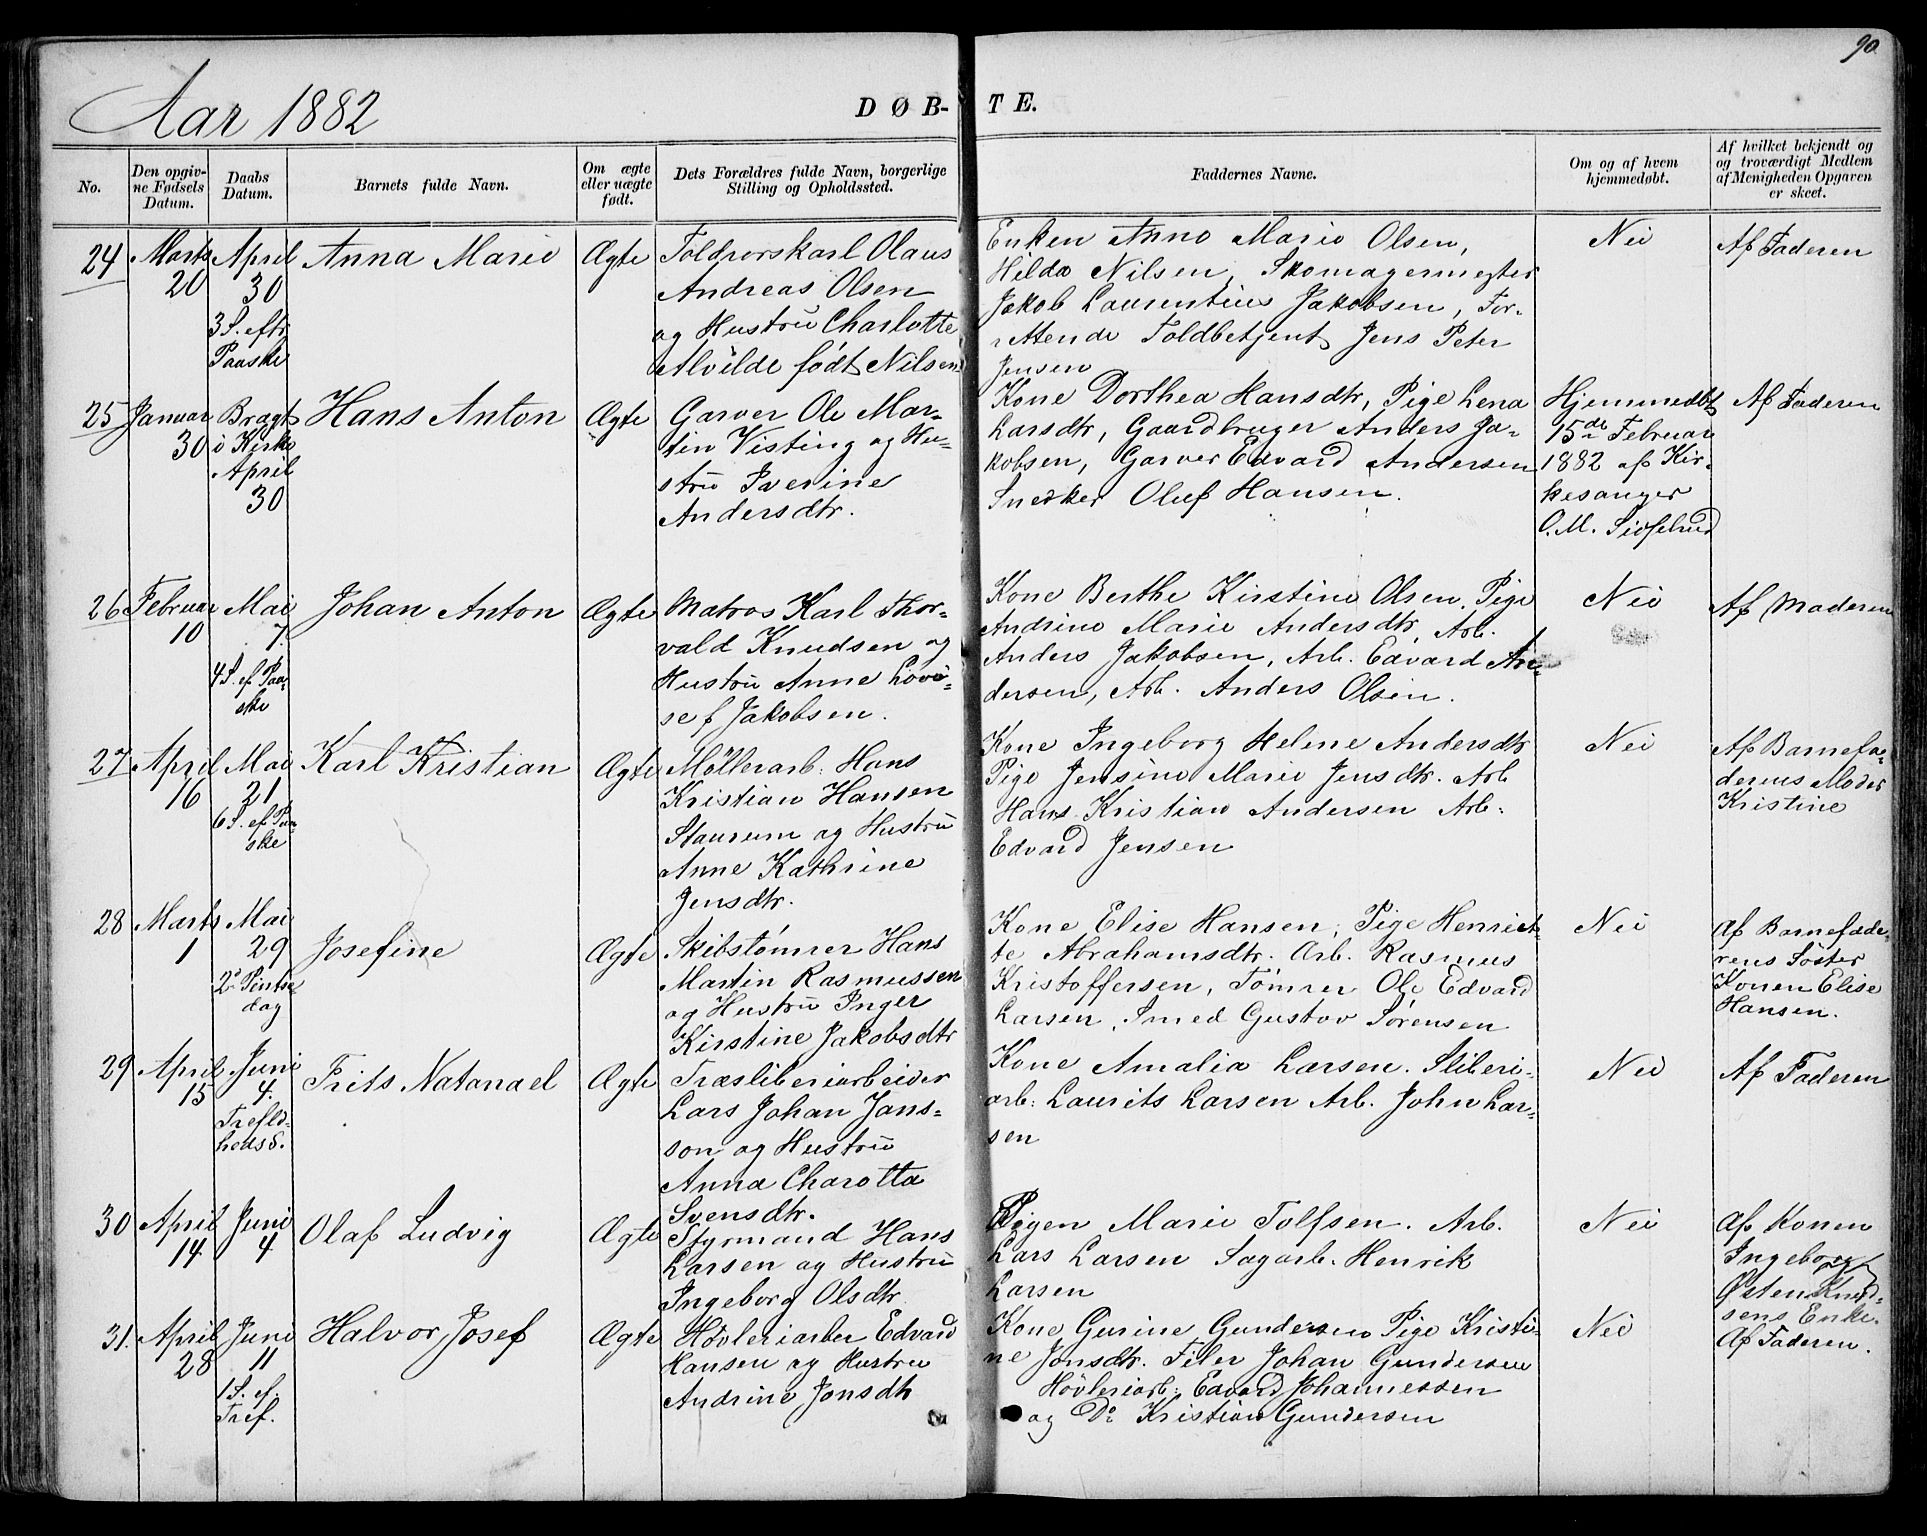 90
Aar 1882
DØB-
TE.
No.
Den opgiv-
ne Fødsels
Datum.
Daabs
Datum.
Barnets fulde Navn.
Om ægte
eller uægte
født.
Dets Forældres fulde Navn, borgerlige
Stilling og Opholdssted.
Faddernes Navne.
Om og af hvem
hjemmedøbt.
Af hvilket bekjendt og
og troværdigt Medlem
af Menigheden Opgaven
er skeet.
24
Marts
20
April
30
3 S. eftr
Paaske
Anna Marie
Ægte
Toldrorskarl Olaus
Andreas Olsen
og Hustru Charlotte
Alvilde født Nilsen
Enken Anne Marie Olsen,
Hilda Nilsen, Skomagermester
Jakob Laurentius Jakobsen, For-
rettende Toldbetjent Jens Peter
Jensen
Nei
Af Faderen
25
Januar
30
Bragt
i Kirke
April
30
Hans Anton
Ægte
Garver Ole Mar-
tin Visting og Hu-
stru Iverine
Andersdtr.
Kone Dorthea Hansdtr, Pige Lena
Larsdtr, Gaardbruger Anders Ja-
kobsen, Garver Edvard Andersen
Snedker Oluf Hansen.
Hjemmedbt
15de Februar
1882 af Kir-
kesanger
O. M.
Af Faderen
26
Februar
10
Mai
7.
4 S. ef Paa-
ske
Johan Anton
Ægte
Matros Karl Thor-
vald Knudsen og
Hustru Anne Lovi-
se f Jakobsen.
Kone Berthe Kirstine Olsen, Pige
Andrine Marie Andersdtr, Arb.
Anders Jakobsen, Arb. Edvard An-
dersen, Arb. Anders Olsen.
Nei
Af Moderen
27
April
16
Mai
21
6 S. ef Paa-
ske
Karl Kristian
Ægte
Møllerarb: Hans
Kristian Hansen
Staurum og Hustru
Anne Kathrine
Jensdtr.
Kone Ingeborg Helene Andersdtr
Pige Jensine Marie Jensdtr. Arb
Hans Kristian Andersen Arb:
Edvard Jensen
Nei
Af Barnefa-
derens Moder
Kristine
28
Marts
1
Mai
29
2. Pintse
dag
Josefine
Ægte
Skibstømrer Hans
Martin Rasmussen
og Hustru Inger
Kirstine Jakobsdtr
Kone Elise Hansen, Pige Henriet-
te Abrahamsdtr. Arb. Rasmus
Kristoffersen, Tømrer Ole Edvard
Larsen, Smed Gustav Sørensen
Nei
Af Barnefade-
rens Søster
Konen Elise
Hansen.
29
April
15
Juni
4.
Trefld-
heds S.
Frits Natanael
Ægte
Træsliberiarbeider
Lars Johan Jans-
son og Hustru
Anna Charotta
Svensdtr.
Kone Amalia Larsen. Sliberi-
arb: Laurits Larsen Arb. John Lar-
sen
Nei
Af Faderen
30
April
14
Juni
4
Olaf Ludvig
Ægte
Styrmand Hans
Larsen og Hustru
Ingeborg Olsdtr
Pigen Marie Tolfsen. Arb.
Lars Larsen Sagarb. Henrik
Larsen
Nei
Af Konen
Ingeborg
Østen Knud-
sens Enke.
31.
April
28
Juni
11
1 S. ef.
Tref.
Halvor Josef
Ægte
Høvleriarber Edvard
Hansen og Hustru
Andrine Jonsdtr
Kone Gurine Gundersen Pige Kristi-
ne Jonsdtr. Filer Johan Gundersen
Høvleriarb: Edvard Johannessen
og Do Kristian Gundersen
Nei
Af Faderen.